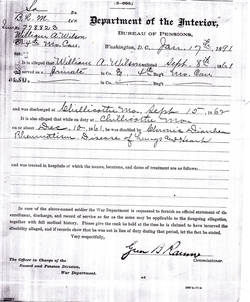 Department of the Interior,
BUREAU OF PENSIONS,
Washington, D.C., Jan. 17th, 1891
William A. Wilson
4th Mo. Cav.
It is alleged that William A. Wilson enlisted Sept. 8th 1861
as a Private in Co. 4th Regt. Mo. Cav
and was discharged at Chillicothe Mo. Sept 15, 1862
It is also alleged that while on duty at Chillicothe Mo
on or about Dec 10, 1861, he was disabled by Chronic Diarrhea
Rheumatism Disease of Lungs & Heart
and was treated in hospitals of which the names, location, and dates of treatment are as follows:
In case of the above-named soldier the War Department is requested to furnish an official statement of the
enrollment, discharge, and record of service so far as the same may be applicable to the foregoing allegations,
together with full medical history. Please give the rank he held at the time he is claimed to have incurred the
disability alleged, and if records show that he was not in line of duty during that period, let the fact be stated.
Very respectfully,
Green B. Raum
Commissioner.
The Officer in Charge of the
Record and Pension Division,
War Department.